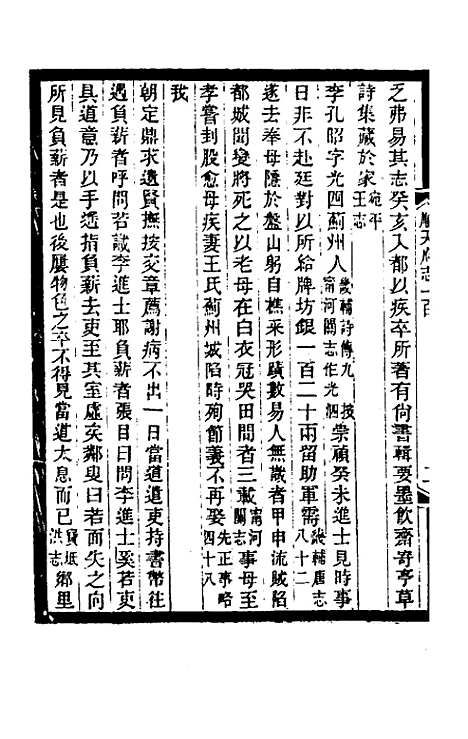 之弗易其志癸亥入都以疾卒所著有尙書輯要墨飮齋奇亭草
詩集藏於家宛平王志
李孔昭字光四薊州人畿輔詩傳九 按甯河關志作光泗崇禎癸未進士見時事
日非不赴廷對以所給牌坊銀一百二十兩留助軍需畿輔唐志八十二
遂去奉母隱於盤山躬自樵采形蹟數易人無識者甲申流賊陷
都城聞變將死之以老母在白衣冠哭田閒者三載甯河關志事母至
孝嘗刲股愈母疾妻王氏薊州城陷時殉節義不再娶先正事略四十八
我
朝定鼎求遺賢撫按交章薦謝病不出一日當道遣吏持書幣往
遇負薪者呼問若識李進士耶負薪者張目曰問李進士奚若吏
具道意乃以手透指負薪去吏至其室虛矣鄰叟曰若而失之向
所見負薪者是也後屢物色之卒不得見當道太息而已寶坻洪志鄉里
順天府志一百